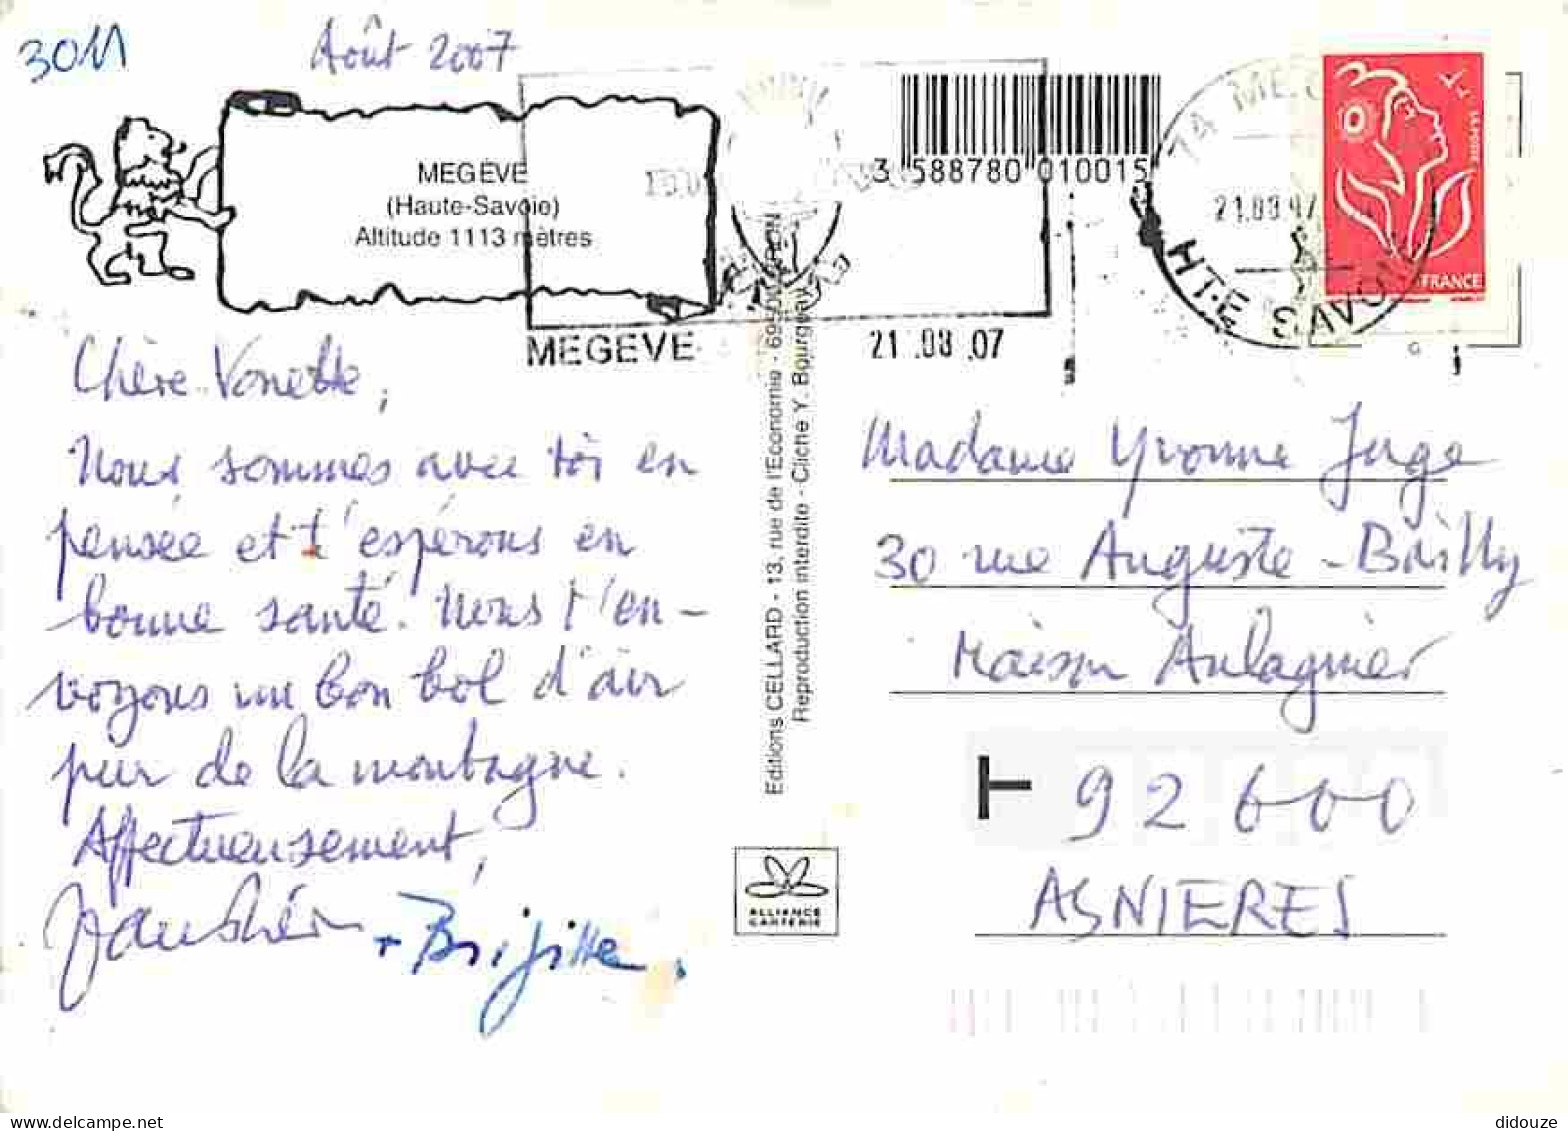 3011
Août 2007
MEGÈVE
(Haute-Savoie)
Altitude 1113 mètres
3 588780 010015
74 ME
21.08.07
HTE SAVOIE
FRANCE
MEGEVE
21.08.07
Chère Vonette,
Nous sommes avec toi en
pensée et t'espérons en
bonne santé. Nous t'en-
voyons un bon bol d'air
pur de la montagne.
Affectueusement,
+ Brigitte.
Editions CELLARD - 13, rue de l'Economie - 69500 BRON
Reproduction interdite - Cliché Y. Bourgeay
ALLIANCE
CARTERIE
Madame Yvonne Juge
30 rue Auguste-Bailly
Maison Aulagnier
92600
ASNIERES
delcampe.net
didouze